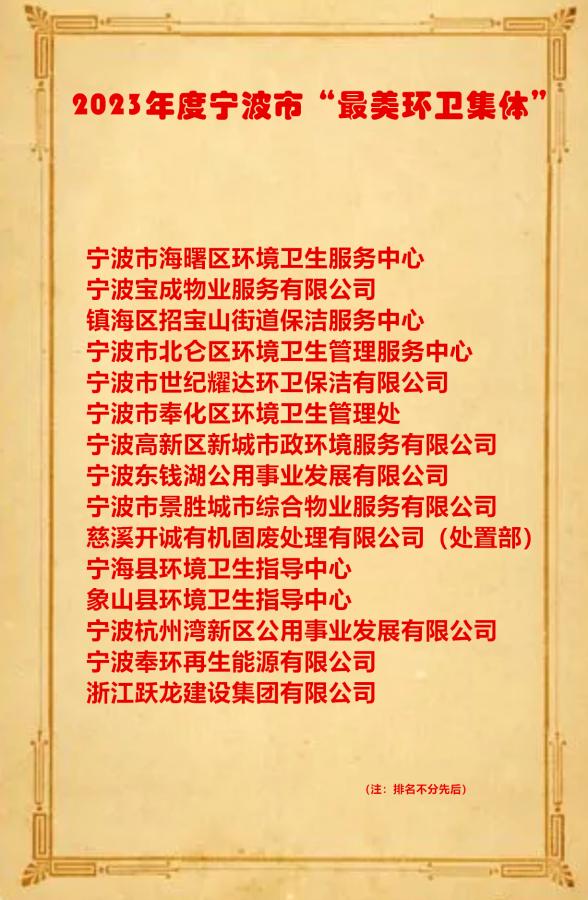 2023年度宁波市“最美环卫集体”
宁波市海曙区环境卫生服务中心
宁波宝成物业服务有限公司
镇海区招宝山街道保洁服务中心
宁波市北仑区环境卫生管理服务中心
宁波市世纪耀达环卫保洁有限公司
宁波市奉化区环境卫生管理处
宁波高新区新城市政环境服务有限公司
宁波东钱湖公用事业发展有限公司
宁波市景胜城市综合物业服务有限公司
慈溪开诚有机固废处理有限公司（处置部）
宁海县环境卫生指导中心
象山县环境卫生指导中心
宁波杭州湾新区公用事业发展有限公司
宁波奉环再生能源有限公司
浙江跃龙建设集团有限公司
（注：排名不分先后）